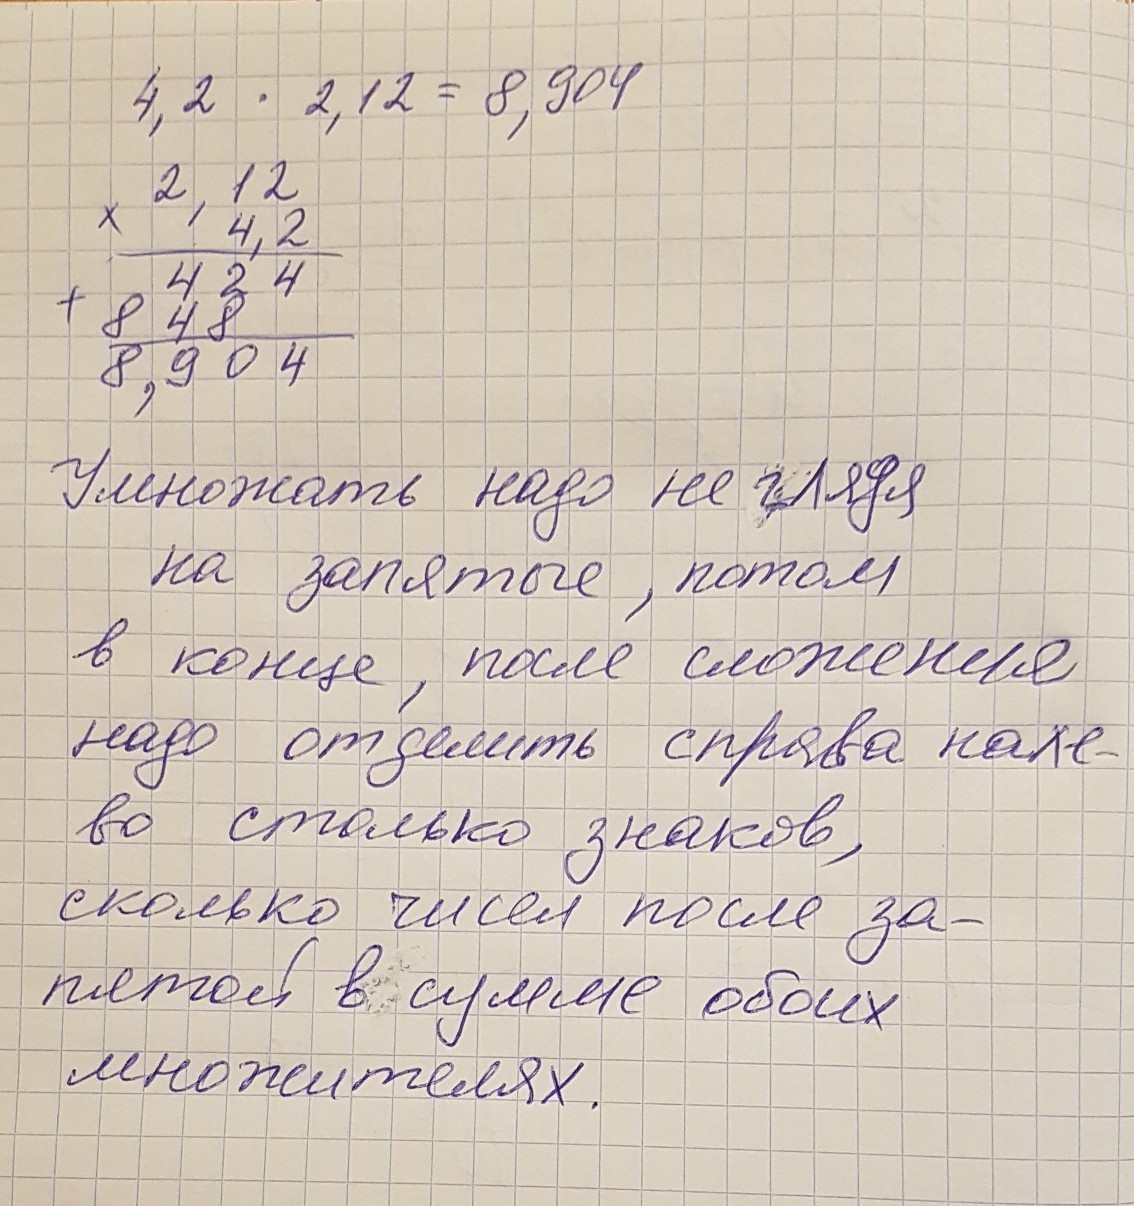 4,2 · 2,12 = 8,904
2,12
× 4,2
4 2 4
+ 8 4 8
8,9 0 4
Умножать надо не глядя
на запятые, потом
в конце, после сложения
надо отделить справа нале-
во столько знаков,
сколько чисел после за-
пятой в сумме обоих
множителях.